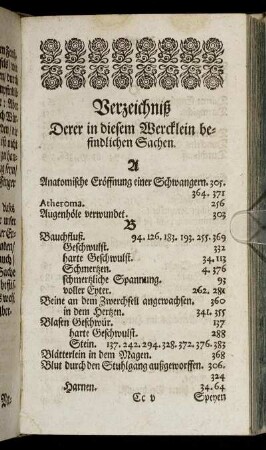 Verzeichniß
Derer in diesem Wercklein be-
findlichen Sachen.
A
Anatomische Eröffnung einer Schwangern. 305.
364. 371
Atheroma. 256
Augenhöle verwundet. 303
B
Bauchfluß. 94. 126. 183. 193. 255. 369
Geschwulst. 332
harte Geschwulst. 34. 113
Schmertzen. 4. 376
schmertzliche Spannung. 93
voller Eyter. 262. 281
Beine an dem Zwerchfell angewachsen. 360
in dem Hertzen. 341. 355
Blasen Geschwür. 137
harte Geschwulst. 288
Stein. 137. 242. 294. 328. 372. 376. 383
Blätterlein in dem Magen. 368
Blut durch den Stuhlgang außgeworffen. 306.
324
Harnen. 34. 64
Cc v Speyen